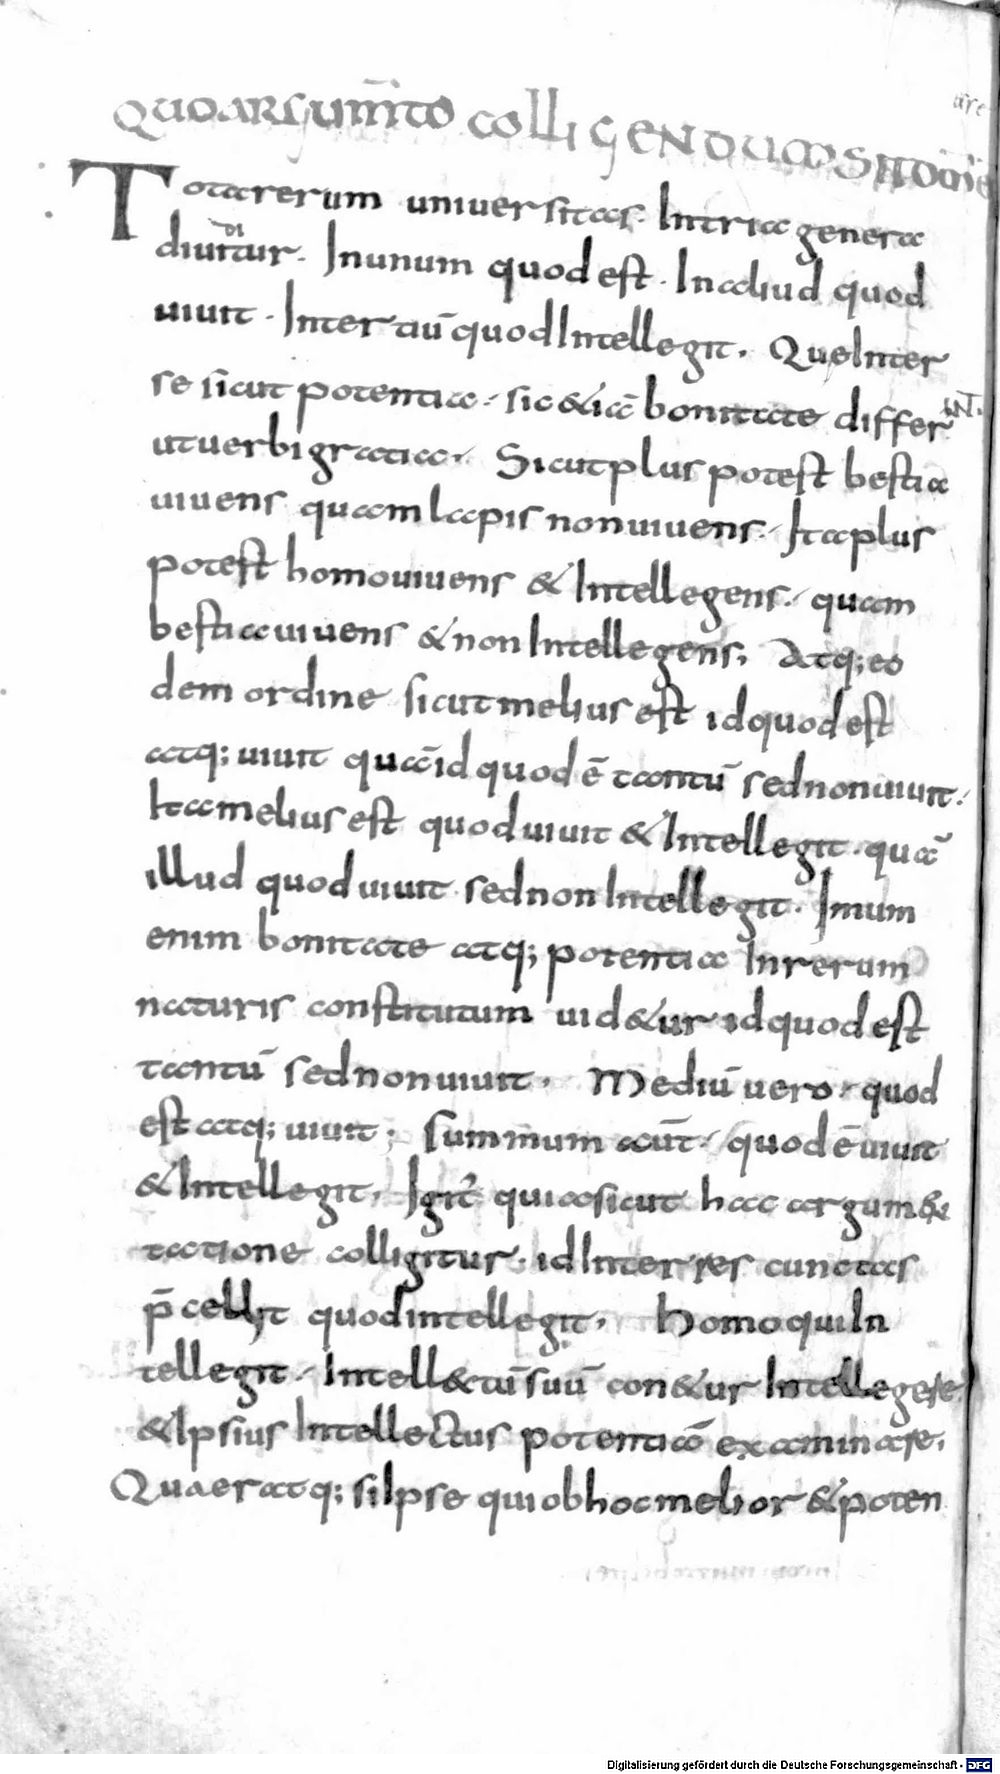 QUO ARGUM̄TO COLLIGENDUM SIT DM̄ E
are
Tota rerum uniuersitas. In tria genera
diuiditur. In unum quod est. In aliud quod
uiuit. In tertiū quod Intellegit. Que Inter
se sicut potentia. sic & iā bonitate differUNT.
ut uerbi gratia. Sicut plus potest bestia
uiuens quam lapis non uiuens. Ita plus
potest homo uiuens & Intellegens. quam
bestia uiuens & non Intellegens; Atq; eo
dem ordine sicut melius est id quod est
atq; uiuit quā id quod ē tantū sed non uiuit.
Ita melius est quod uiuit & Intellegit. quā
illud quod uiuit. sed non Intellegit. Imum
enim bonitate atq; potentia In rerum
naturis constitutum uid&ur id quod est
tantū sed non uiuit. Mediū uero. quod
est atq; uiuit; summum aūt. quod ē uiuit
& Intellegit. Igit̄ quia sicut hac argumen
tatione colligitur. id Inter res cunctas
p̄cellit quod intellegit. Homo qui In
tellegit. Intell&tū suū con&ur Intellegere
& Ipsius Intellectus potentiā examinare.
Quaeratq; si Ipse qui ob hoc melior & poten
Digitalisierung gefördert durch die Deutsche Forschungsgemeinschaft - DFG